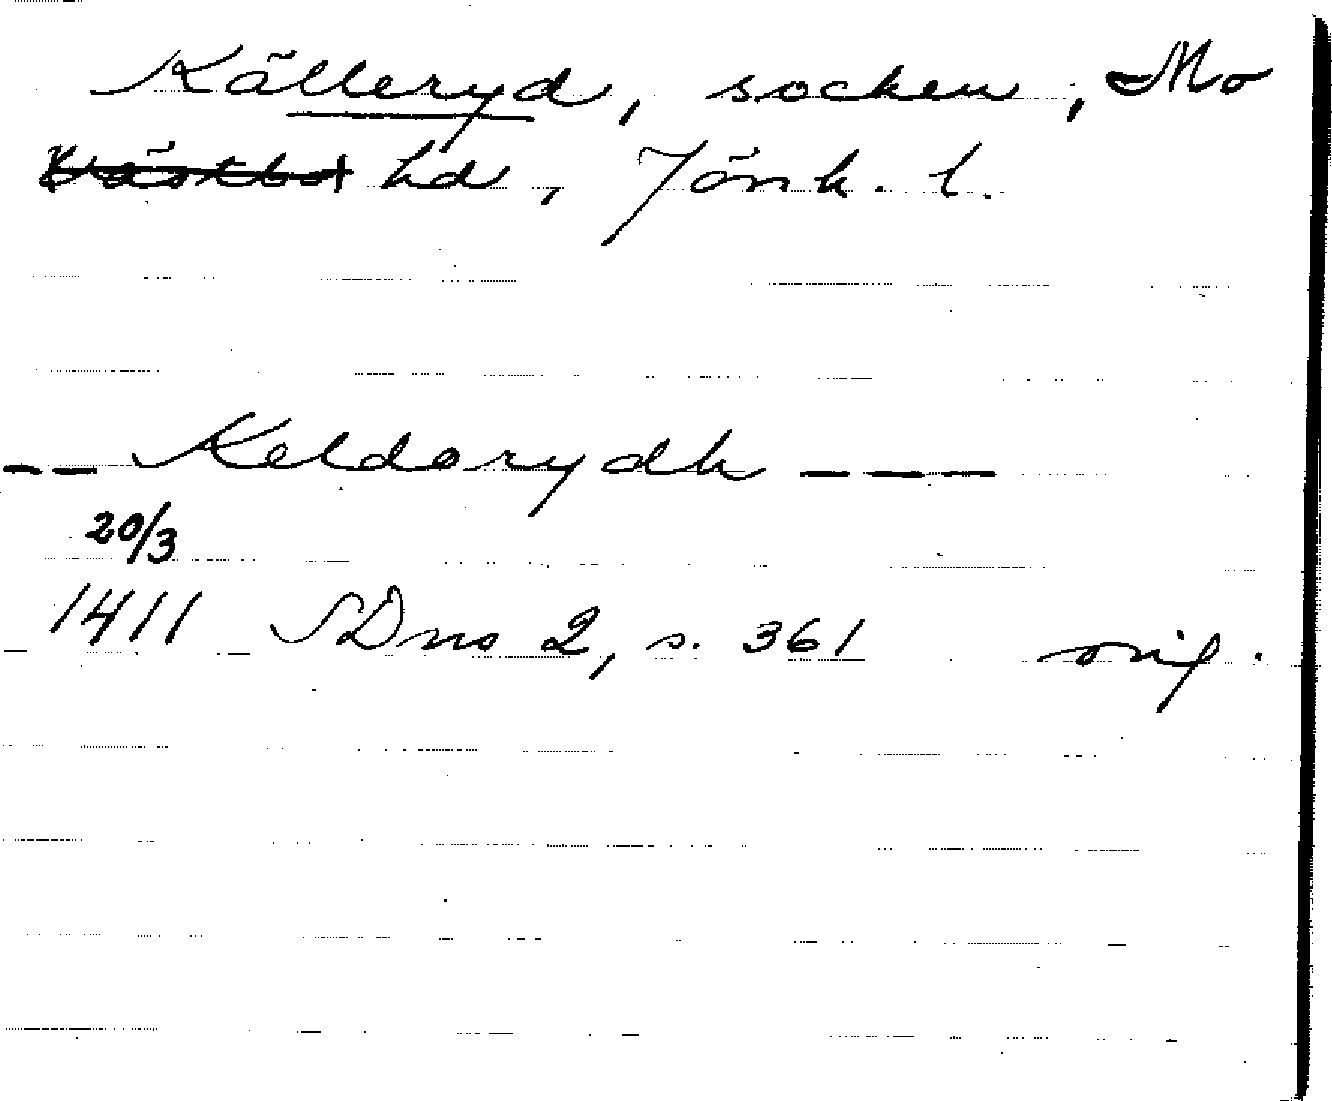 Källeryd, socken, Mo
Västbo hd, Jönk. l.
-- Keldorydh ---
20/3
1411 SDns 2, s. 361 orig.